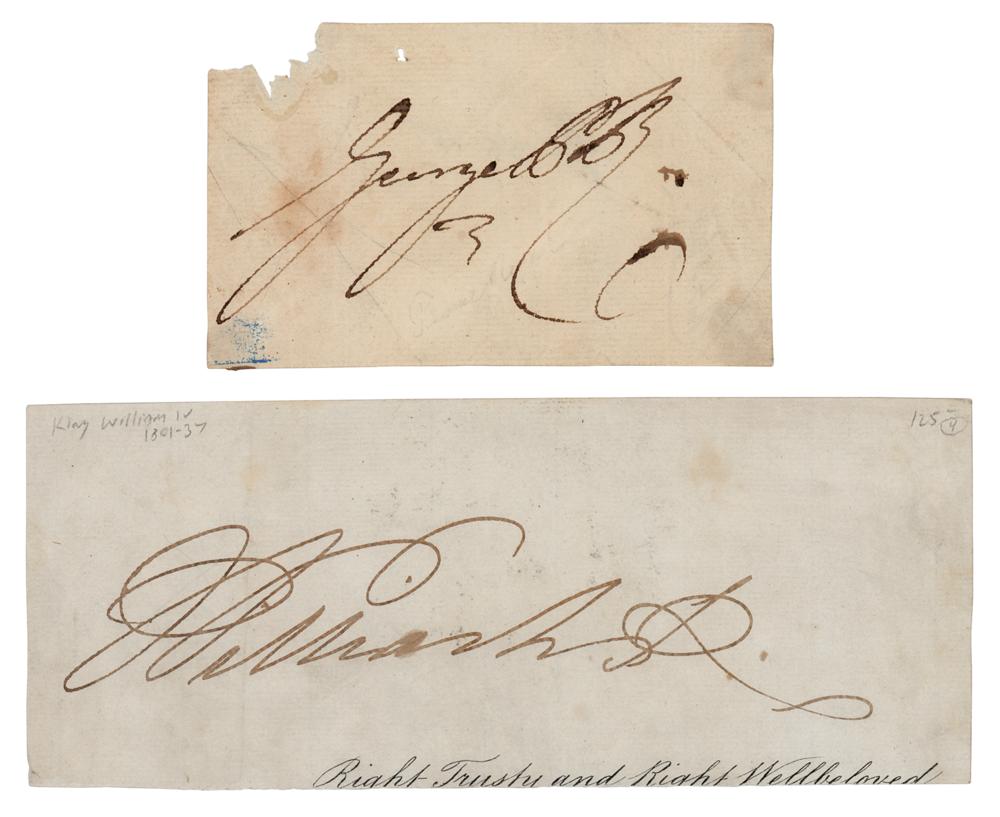 George
King William IV
1801-37
125-
4
William R.
Right Trusty and Right Wellbeloved